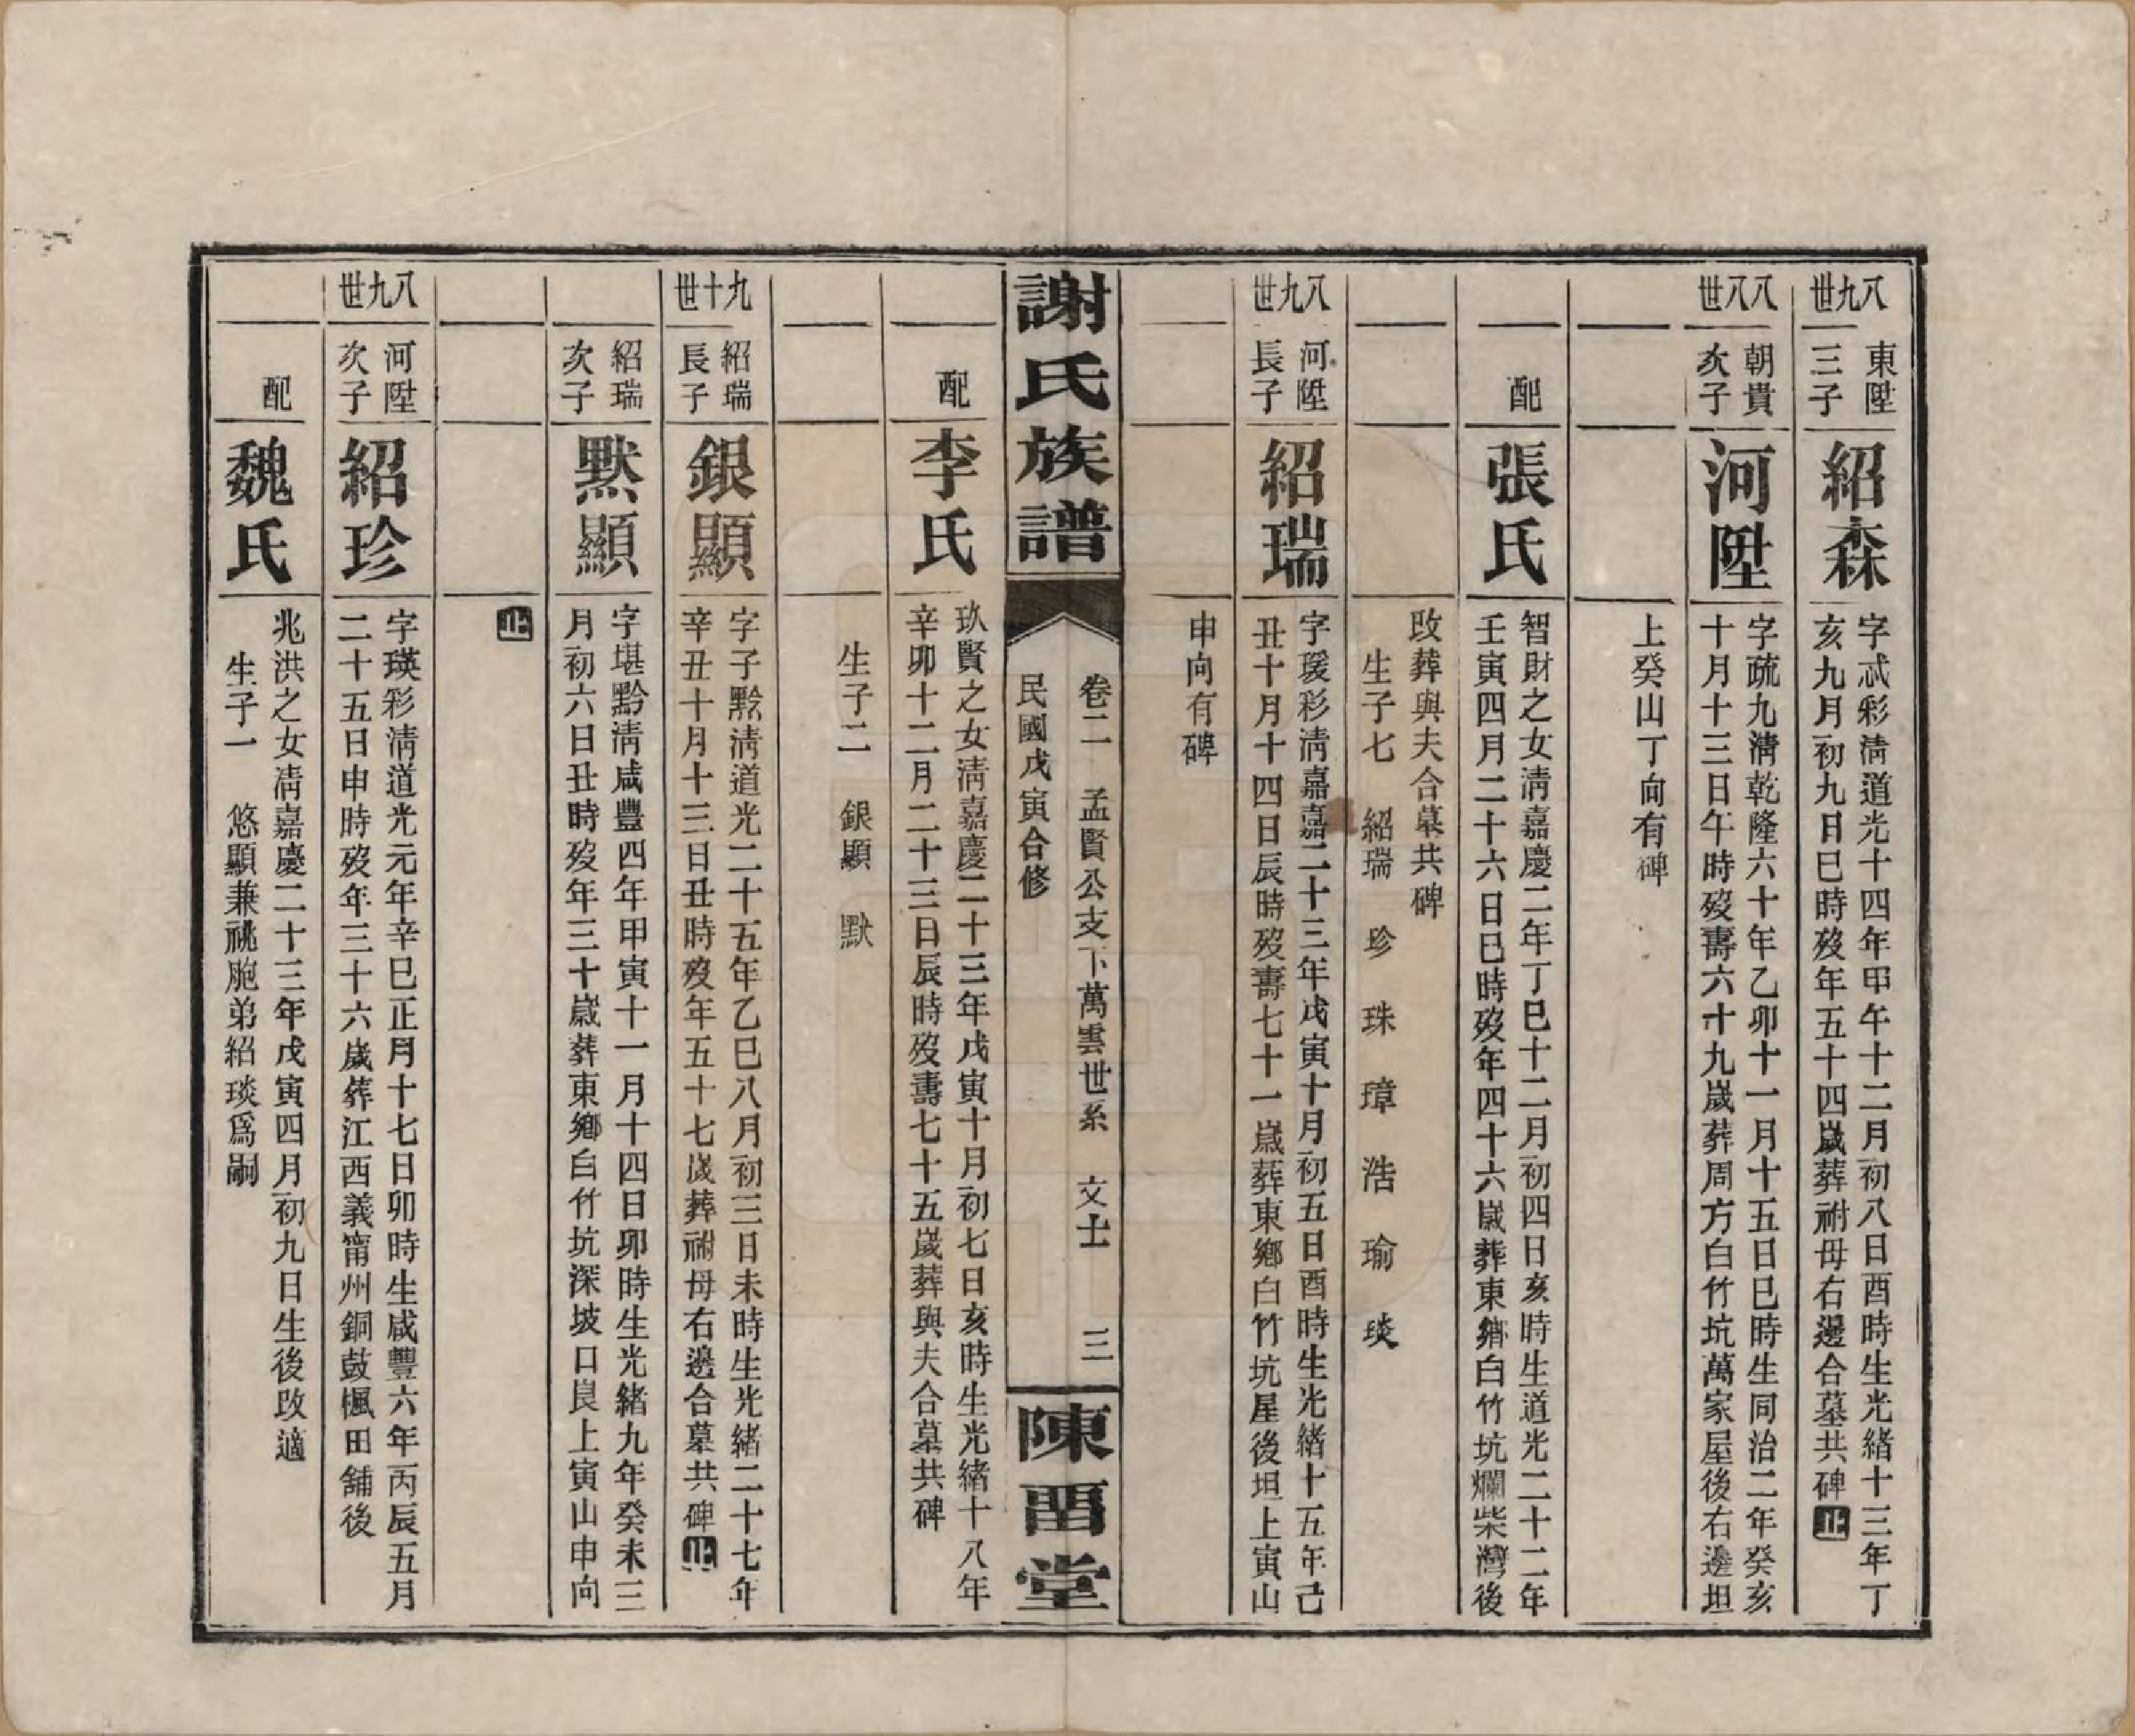 八九世
東陞
三子
紹森
字忒彩淸道光十四年甲午十二月初八日酉時生光緒十三年丁
亥九月初九日巳時歿年五十四歲葬祔母右邊合墓共碑止
八八世
朝貴
次子
河陞
字疏九淸乾隆六十年乙卯十一月十五日巳時生同治二年癸亥
十月十三日午時歿壽六十九歲葬周方白竹坑萬家屋後右邊坦
上癸山丁向有碑
配
張氏
智財之女淸嘉慶二年丁巳十二月初四日亥時生道光二十二年
壬寅四月二十六日巳時歿年四十六歲葬東鄉白竹坑爛柴灣後
改葬與夫合墓共碑
生子七 紹瑞 珍 珠 璋 浩 瑜 琰
八九世
河陞
長子
紹瑞
字瑷彩淸嘉嘉二十三年戊寅十月初五日酉時生光緒十五年己
丑十月十四日辰時歿壽七十一歲葬東鄉白竹坑屋後坦上寅山
申向有碑
謝氏族譜
卷二 孟賢公支下萬雲世系 文士 三
民國戊寅合修
陳畱堂
配
李氏
玖賢之女淸嘉慶二十三年戊寅十月初七日亥時生光緒十八年
辛卯十二月二十三日辰時歿壽七十五歲葬與夫合墓共碑
生子二 銀顯 默
九十世
紹瑞
長子
銀顯
字子黙淸道光二十五年乙巳八月初三日未時生光緒二十七年
辛丑十月十三日丑時歿年五十七歲葬祔母右邊合墓共碑止
紹瑞
次子
默顯
字堪黔淸咸豐四年甲寅十一月十四日卯時生光緒九年癸未三
月初六日丑時歿年三十歲葬東鄉白竹坑深坡口艮上寅山申向
止
八九世
河陞
次子
紹珍
字瑛彩淸道光元年辛巳正月十七日卯時生咸豐六年丙辰五月
二十五日申時歿年三十六歲葬江西義甯州銅鼓楓田舖後
配
魏氏
兆洪之女淸嘉慶二十三年戊寅四月初九日生後改適
生子一 悠顯兼祧胞弟紹琰爲嗣